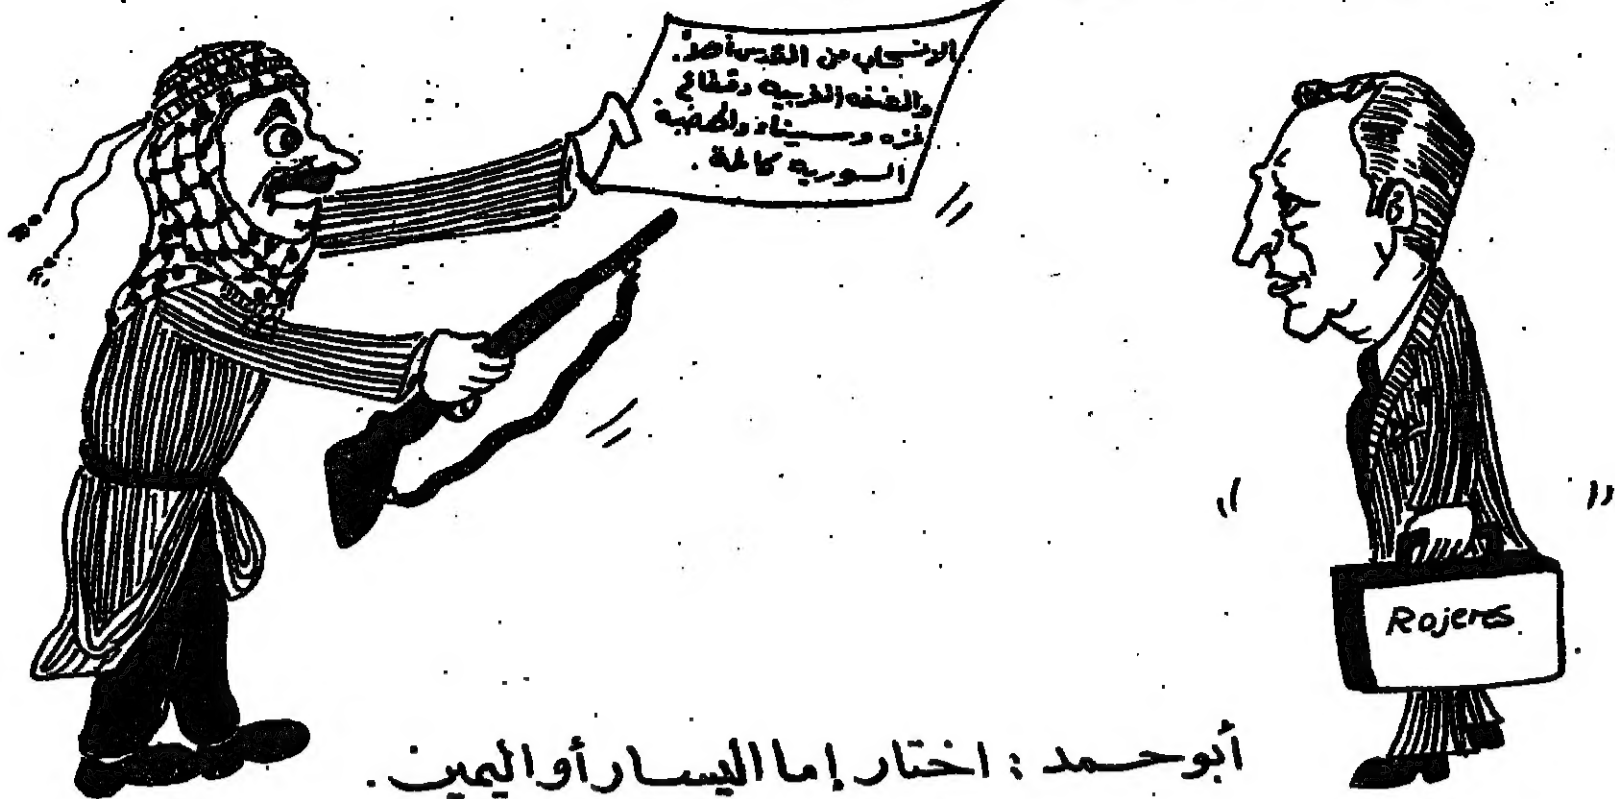 الانسحاب من القدس أولاً.
والضفه الغربيه وقطاع
غزه وسيناء والهضبة
السوريه كاملة.
Rojeres
أبو حمد : اختار إما اليسار أو اليمين.